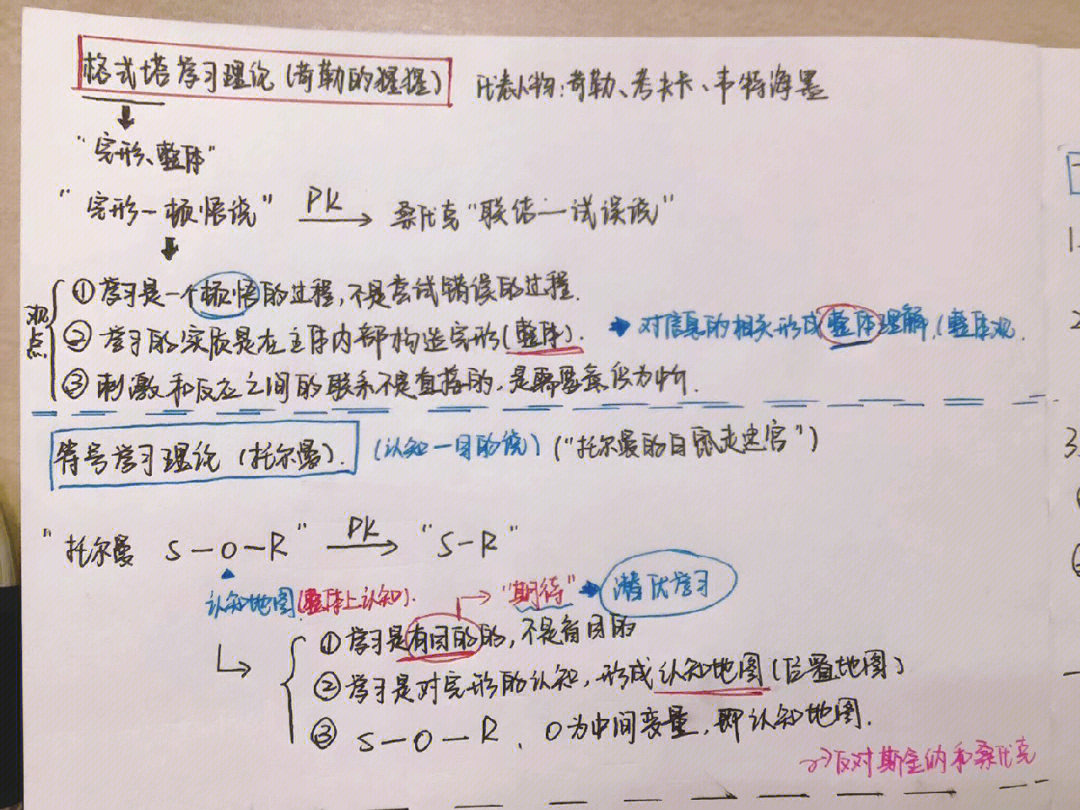 格式塔学习理论(苛勒的猩猩) 代表人物:苛勒、考夫卡、韦特海墨
"完形、整体"
"完形—顿悟说" PK 桑代克"联结—试误说"
观点
① 学习是一个顿悟的过程,不是尝试错误的过程.
② 学习的实质是在主体内部构造完形(整体). 对信息的相关形成整体理解.(整体观.
③ 刺激和反应之间的联系不是直接的,是需要意识为中介.
符号学习理论(托尔曼). (认知—目的说) ("托尔曼的白鼠走迷宫")
"托尔曼 S—O—R" PK "S—R"
认知地图(整体上认知). "期待" 潜伏学习
① 学习是有目的的,不是盲目的
② 学习是对完形的认知,形成认知地图(位置地图)
③ S—O—R、O为中间变量,即认知地图.
反对斯金纳和桑代克
1.
2
3.